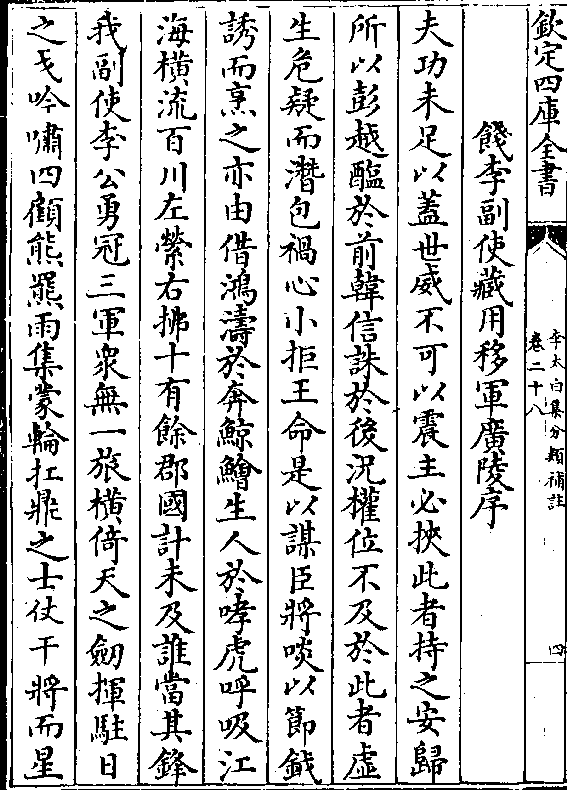 欽定四庫全書
李太白集分類補註
卷二十八
四
餞李副使藏用移軍廣陵序
夫功未足以蓋世威不可以震主必挾此者持之安歸
所以彭越醢於前韓信誅於後況權位不及於此者虛
生危疑而潛包禍心小拒王命是以謀臣將啖以節鉞
誘而烹之亦由借鴻濤於奔鯨鱠生人於哮虎呼吸江
海橫流百川左縈右拂十有餘郡國計未及誰當其鋒
我副使李公勇冠三軍衆無一旅橫倚天之劒揮駐日
之戈吟嘯四顧熊羆雨集蒙輪扛鼎之士仗干將而星